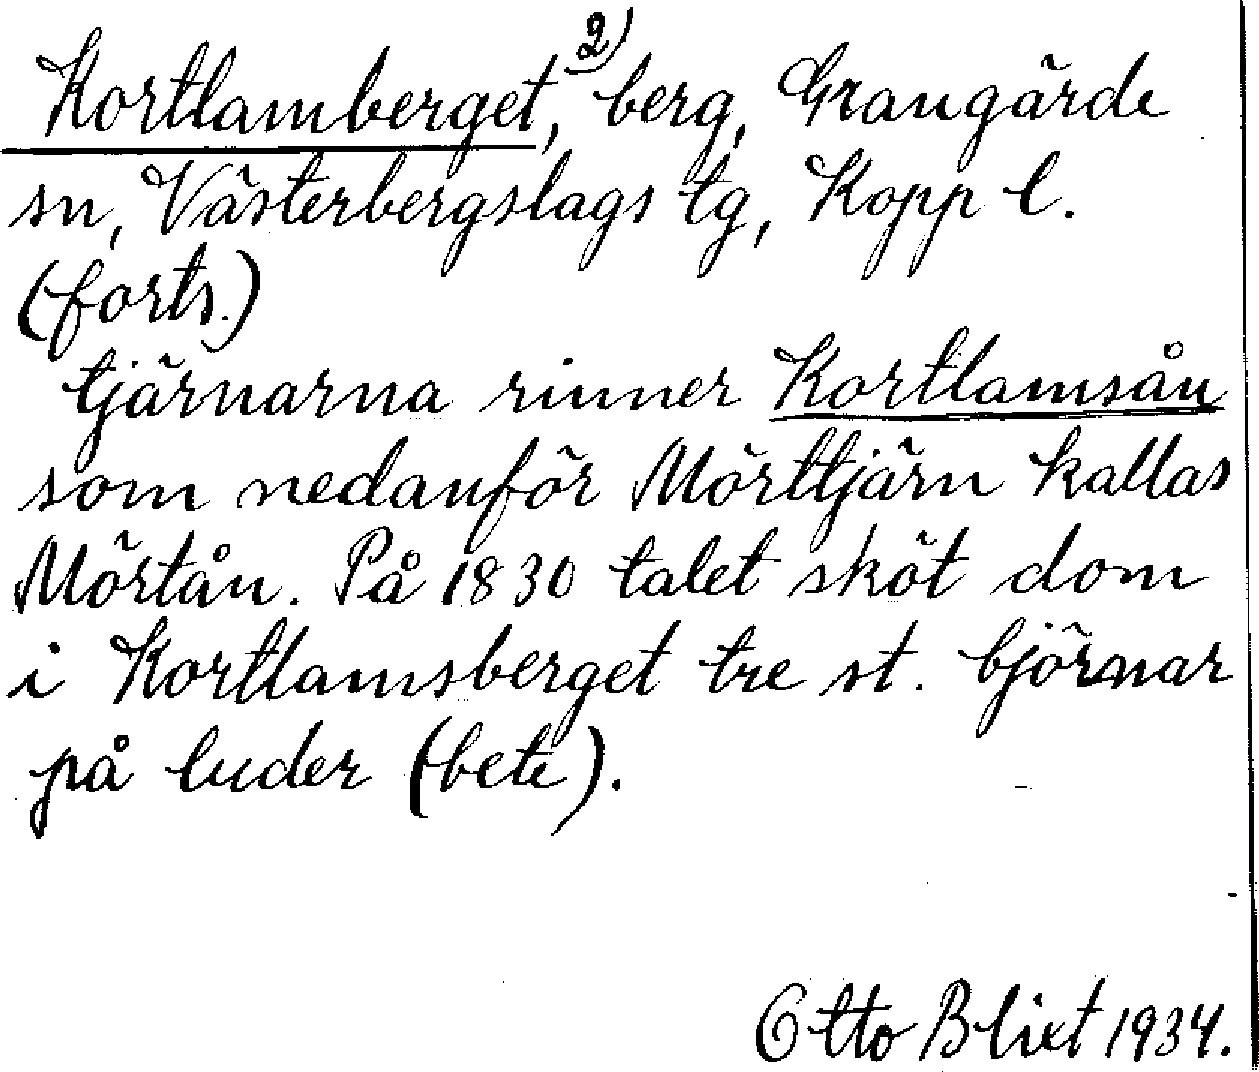 Kortlamberget, 2) berg, Grangärde
sn, Västerbergslags tg, Kopp l.
(forts.)
tjärnarna rinner Kortlamsån
som nedanför Mörttjärn kallas
Mörtån. På 1830 talet sköt dom
i Kortlamsberget tre st. björnar
på luder (bete).
Otto Blixt 1934.